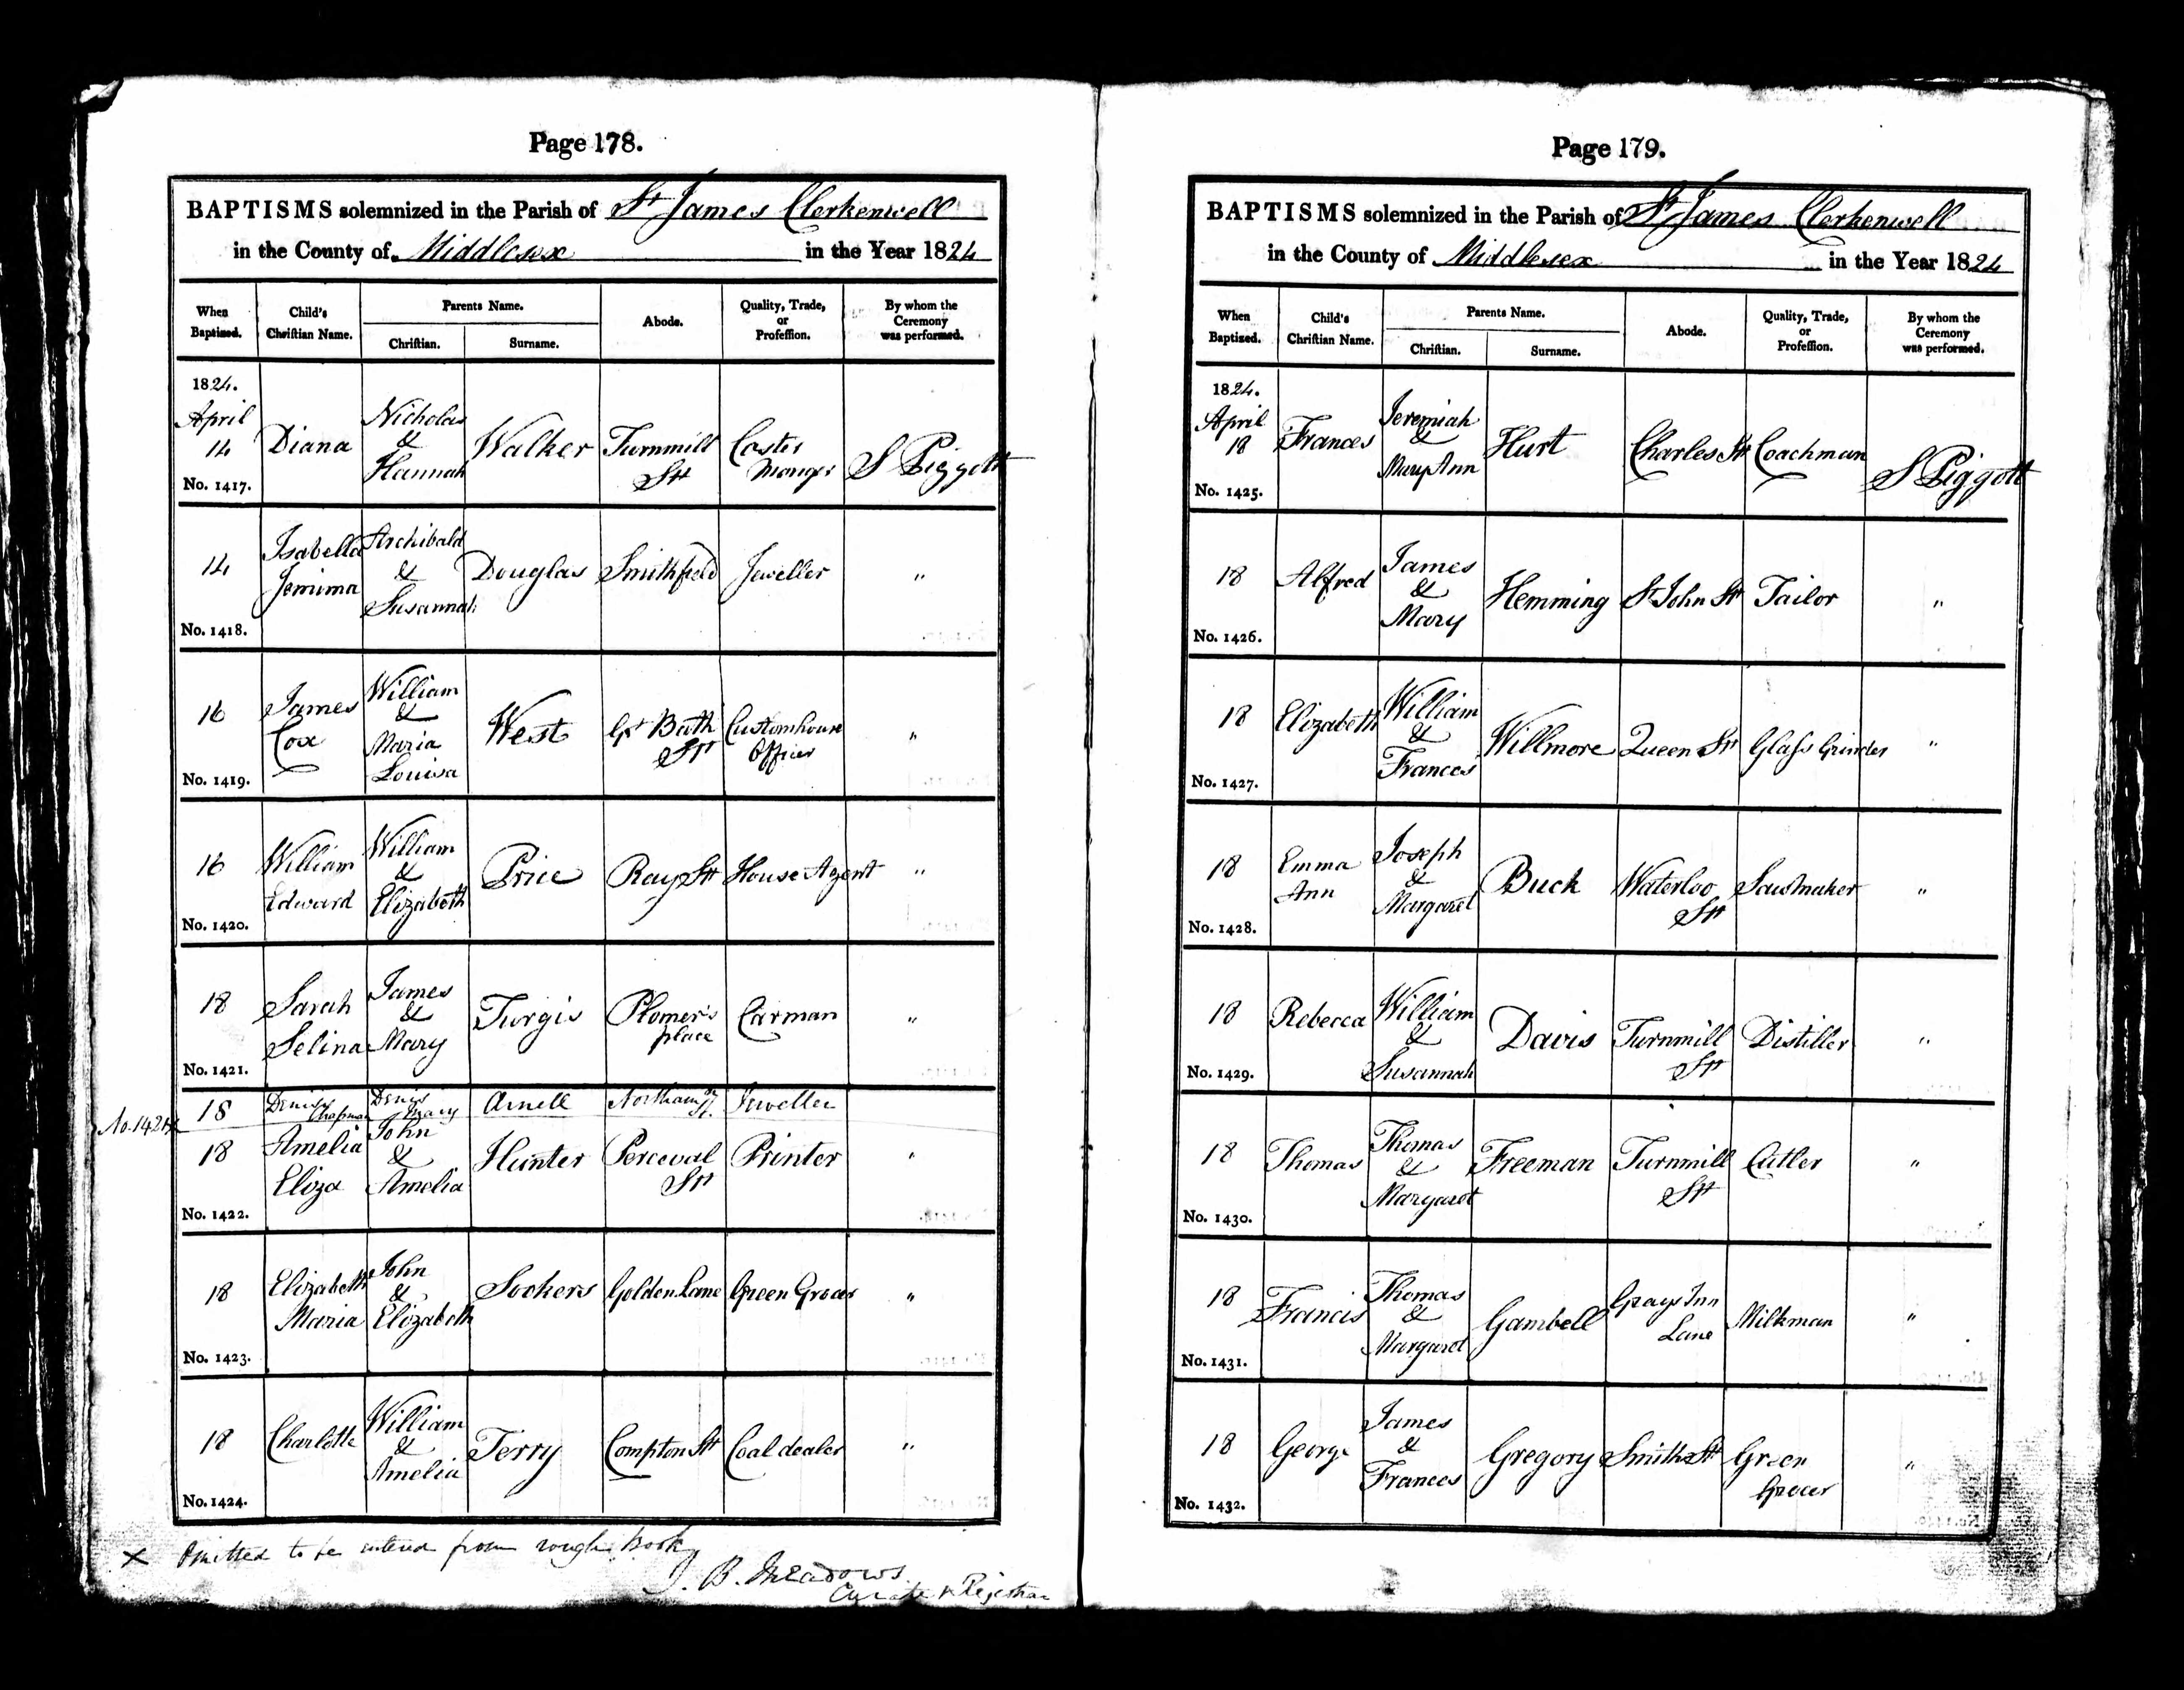 Page 178.
BAPTISMS solemnized in the Parish of St James Clerkenwell
in the County of Middlesex in the Year 1824
When Baptized.
Child's Christian Name.
Parents Name.
Christian.
Surname.
Abode.
Quality, Trade, or Profession.
By whom the Ceremony was performed.
1824. April 14 Diana Nicholas & Hannah Walker Turnmill Stt Coster Monger S Piggott
No. 1417.
14 Isabella Jemima Archibald & Susannah Douglas Smithfield Jeweller "
No. 1418.
16 James Cox William & Maria Louisa West Gt Bath Stt Customhouse Officer "
No. 1419.
16 William Edward William & Elizabeth Price Ray Stt House Agent "
No. 1420.
18 Sarah Selina James & Mary Turgis Plomer's place Carman "
No. 1421.
No. 1421 18 Denis Chapman Denis Mary Arnell Northam St. Jeweller
18 Amelia Eliza John & Amelia Hunter Perceval Stt Printer "
No. 1422.
18 Elizabeth Maria John & Elizabeth Sookers Golden Lane Green Grocer "
No. 1423.
18 Charlotte William & Amelia Terry Compton Stt Coal dealer "
No. 1424.
x Omitted to be entered from rough Book
J. B. Meadows
Curate & Registrar
Page 179.
BAPTISMS solemnized in the Parish of St James Clerkenwell
in the County of Middlesex in the Year 1824
When Baptized.
Child's Christian Name.
Parents Name.
Christian.
Surname.
Abode.
Quality, Trade, or Profession.
By whom the Ceremony was performed.
1824. April 18 Frances Jeremiah & Mary Ann Hurt Charles Stt Coachman S Piggott
No. 1425.
18 Alfred James & Mary Hemming St John Stt Tailor "
No. 1426.
18 Elizabeth William & Frances Willmore Queen Stt Glass Grinder "
No. 1427.
18 Emma Ann Joseph & Margaret Buck Waterloo Stt Sawmaker "
No. 1428.
18 Rebecca William & Susannah Davis Turnmill Stt Distiller "
No. 1429.
18 Thomas Thomas & Margaret Freeman Turnmill Stt Cutler "
No. 1430.
18 Francis Thomas & Margaret Gambell Grays Inn Lane Milkman "
No. 1431.
18 George James & Frances Gregory Smith Stt Green Grocer "
No. 1432.